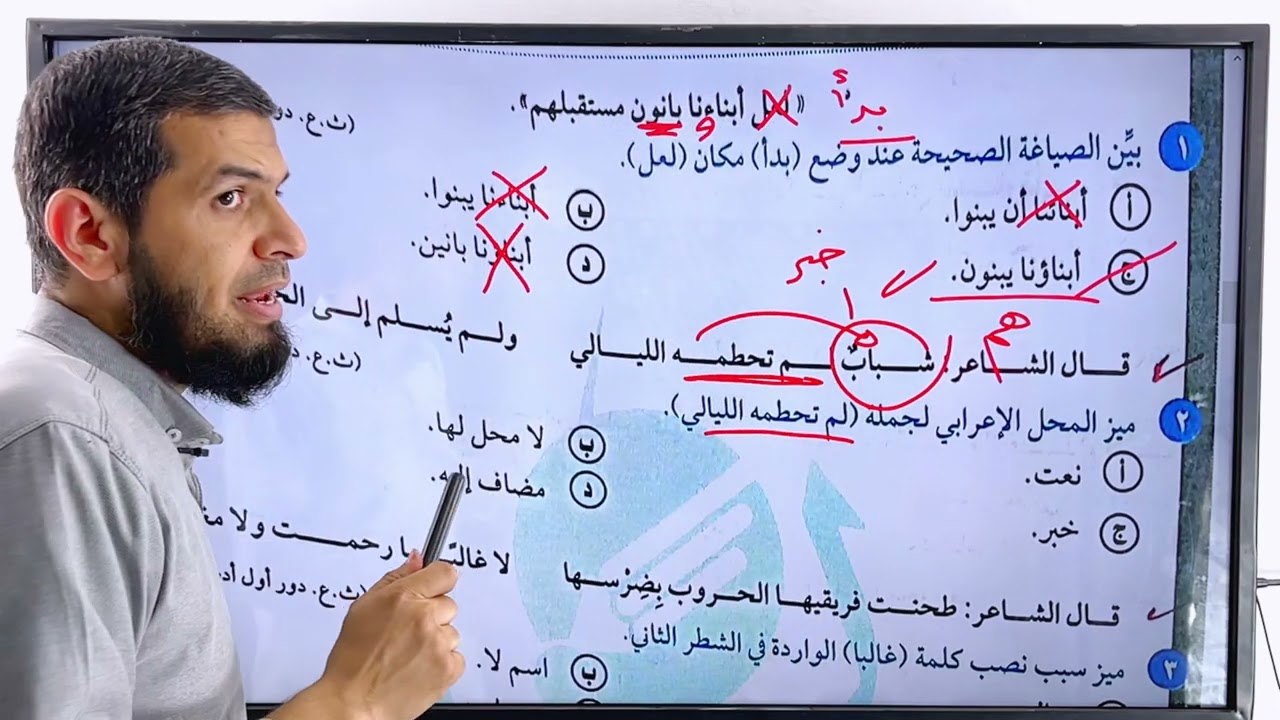 « أبناءنا بانون مستقبلهم».
(ث.ع. دو
بدأ
و
١ بيِّن الصياغة الصحيحة عند وضع (بدأ) مكان (لعل).
أ أبنائنا أن يبنوا.
ب أبناءنا يبنوا.
ج أبناؤنا يبنون.
د أبناؤنا بانين.
خبر
هم
قال الشاعر: شبابٌ لم تحطمه الليالي ولم يُسلم إلى
(ث.ع. د
٢ ميز المحل الإعرابي لجملة (لم تحطمه الليالي).
أ نعت.
ب لا محل لها.
ج خبر.
د مضاف إليه.
قال الشاعر: طحنت فريقيها الحروب بِضِرْسها لا غالبًا رحمت ولا
(ث.ع. دور أول
٣ ميز سبب نصب كلمة (غالبا) الواردة في الشطر الثاني.
ب اسم لا.